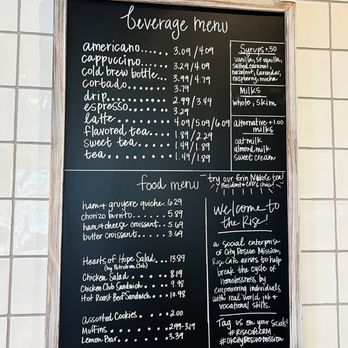 beverage menu
americano...... 3.09/4.09
cappuccino...... 3.29/4.09
cold brew bottle... 3.99/4.79
cortado...... 3.79
drip...... 2.99/3.49
espresso...... 3.29
latte...... 4.09/5.09/6.09
flavored tea..... 1.89/2.29
sweet tea...... 1.49/1.89
tea...... 1.49/1.89
Syrups +.50
vanilla, sf vanilla,
salted caramel,
hazelnut, lavender,
raspberry, mocha
Milks
whole, skim
alternative +1.00
milks
oat milk
almond milk
sweet cream
food menu
ham + gruyere quiche.. 6.29
chorizo burrito..... 5.89
ham + cheese croissant.. 5.69
butter croissant.... 3.69
Hearts of Hope Salad.... 13.89
(by Petroleum Club)
Chicken Salad..... 8.19
Chicken Club Sandwich... 9.98
Hot Roast Beef Sandwich.. 10.98
Assorted Cookies.... 2.00
Muffins...... 2.99-3.29
Lemon Bar...... 3.39
try our Erin tea!
President + CEO's choice!
Welcome to
the Rise!
a social enterprise
of City Rescue Mission,
Rise Cafe exists to help
break the cycle of
homelessness by
empowering individuals
with real world job +
vocational skills.
Tag us on your socials!
@risecafeokc
@cityrescuemission